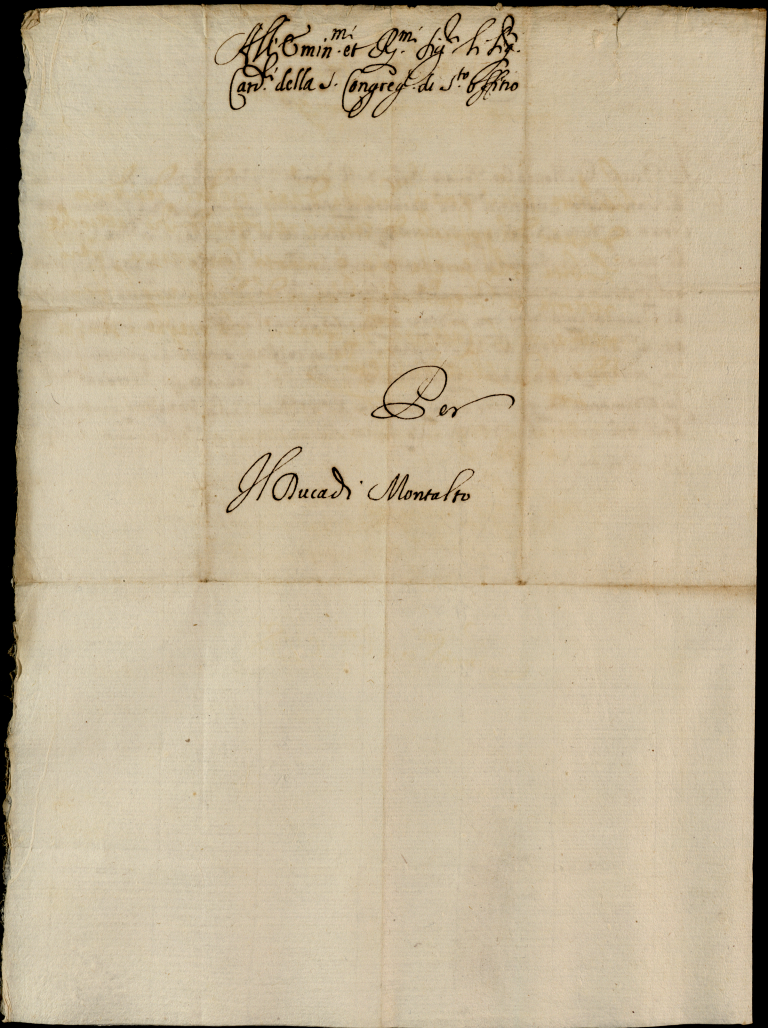 All'Emin.mi et R.mi Sig.ri li Sig.ri
Card.li della S. Congreg. di S.to Offitio
Per
Il Duca di Montalto